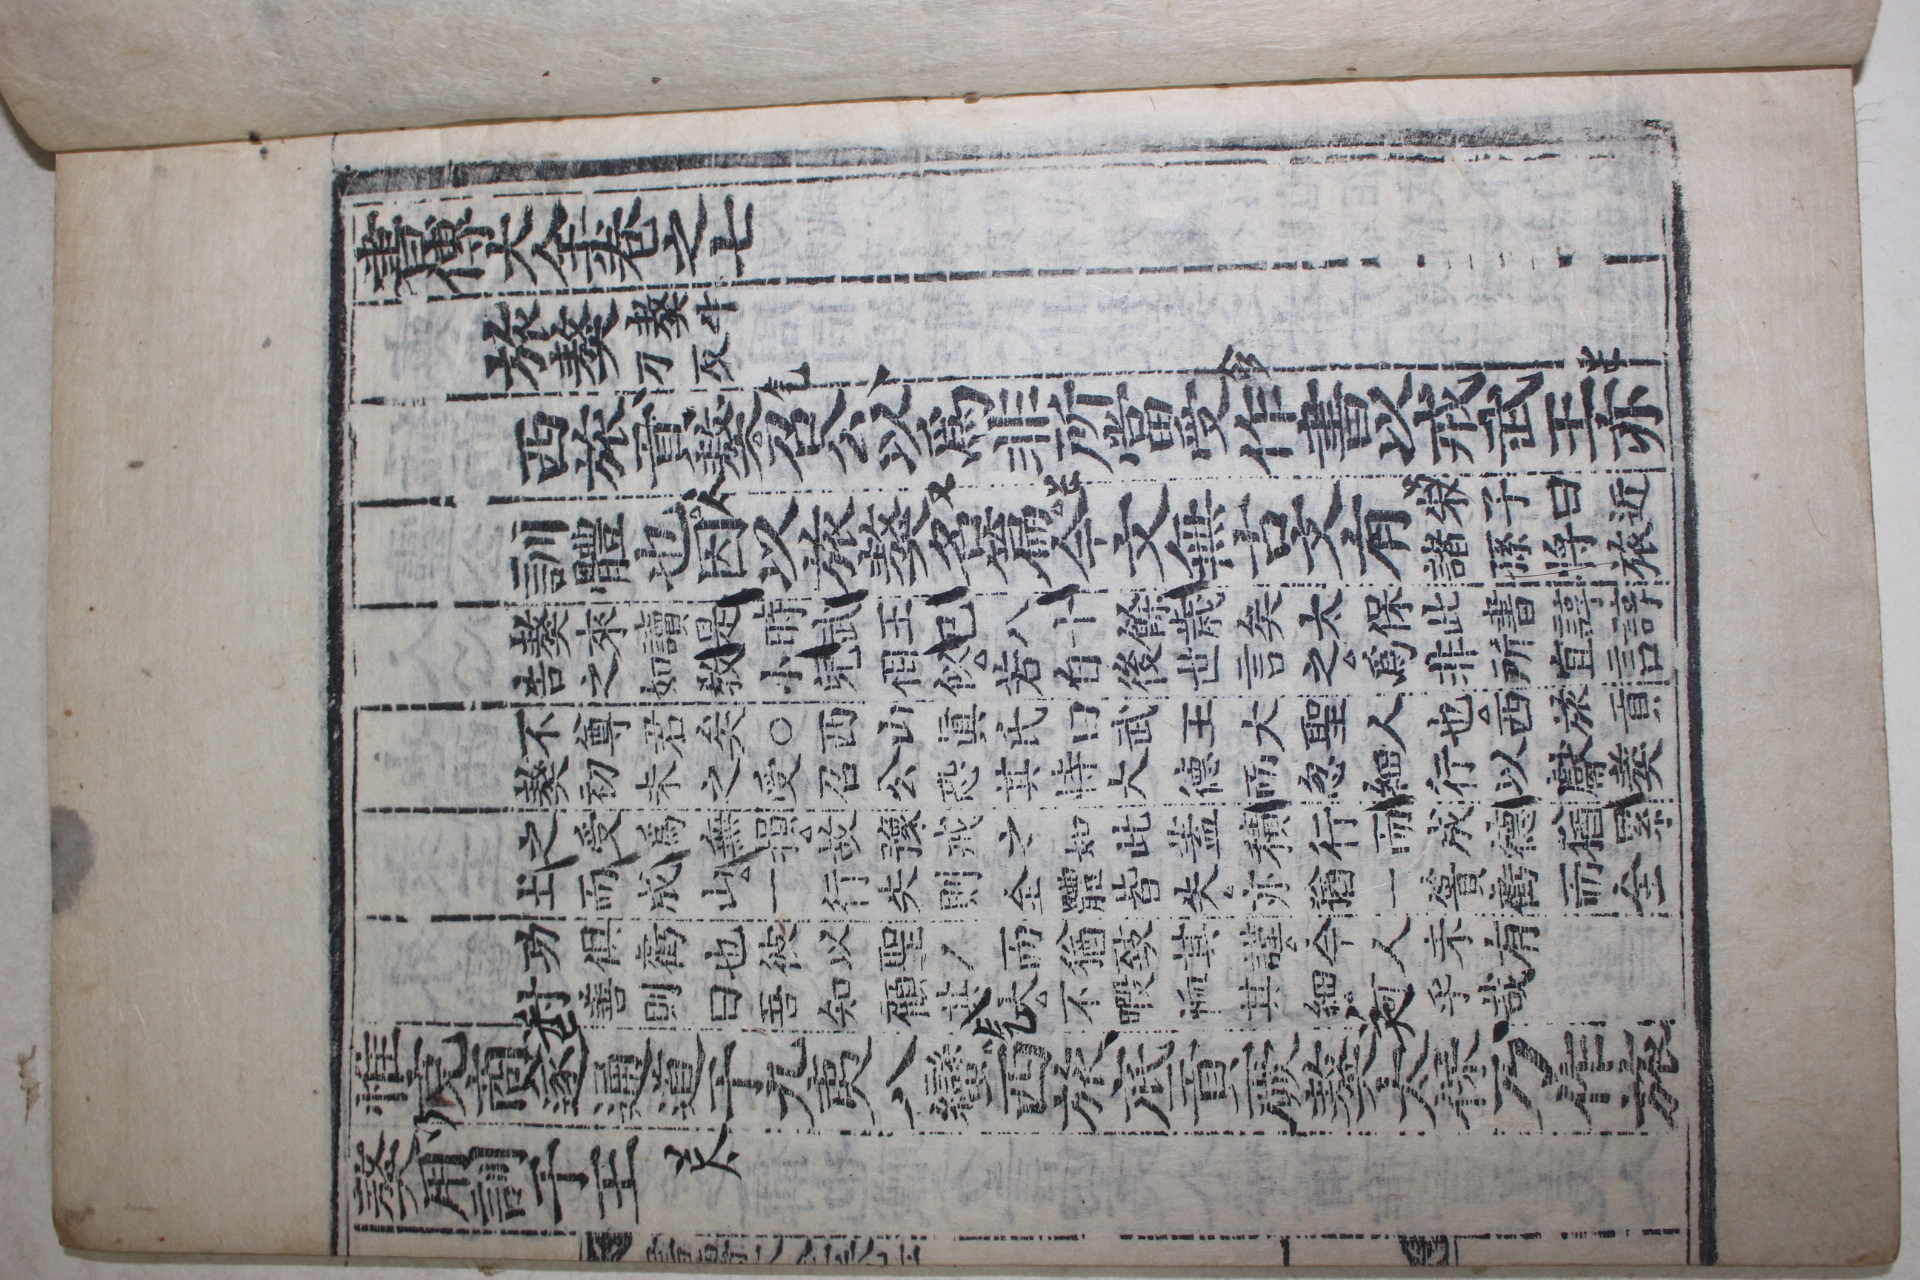 書傳大全卷之七
旅獒 獒牛刀反
西旅貢獒召公以爲非所當受作書以戒武王亦
訓體也因以旅獒名篇今文無古文有 朱子曰近諸孫將旅
獒來讀是時武王已八十餘歲矣太保此書諄諄
告之如敎小兒相似若自後世言之爲非所宜言
不尊君矣○西山眞氏曰武王大聖人也西旅貢
獒初未之受召公恐其恃大德而忽細行以獻獒
之受爲無損故豫戒之如此蓋積行而成德猶累
土而成山一行失則全體皆失亦猶一簣虧而全
功俱虧也彼以聖人而猶致其謹今人未有
對善則曰吾知顧其大不暇恤其細可乎哉
惟克商遂通道于九夷八蠻西旅底貢厥獒太保乃作旅
獒用訓于王